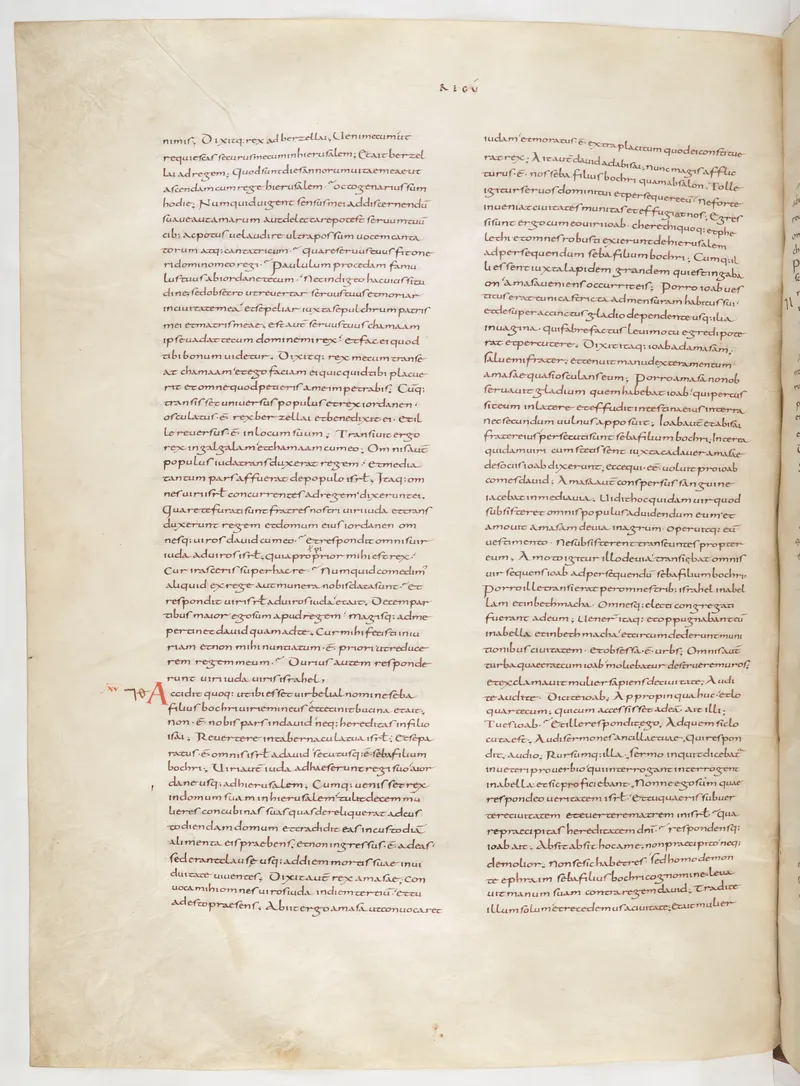 RIGŪ
nimis; Dixitq: rex ad berzellai, Ueni mecum ut
requiescas securus mecum in hierusalem; Et ait berzel
lai ad regem; Quod sunt dies annorum uitae meae ut
ascendam cum rege hierusalem. octogenarius sum
hodie; Numquid uigent sensus mei ad discernendū
suaue aut amarum aut delectare potest seruum tuū
cib: ac potus uel audire ultra possum uocem canta
torum atq: cantatricum. quare seruus tuus fit one
ri domino meo regi. Paululum procedam famu
lus tuus ab iordane tecum. Nec indigeo hac uicissitu
dine sed obsecro ut reuertar seruus tuus et moriar
in ciuitate mea et sepeliar iuxta sepulchrum patris
mei et matris meae. est aut seruus tuus chamaam
ipse uadat tecum domine mi rex et fac ei quod
tibi bonum uidetur. Dixitq: rex mecum transe
at chamaam et ego faciam ei quicquid tibi placue
rit et omne quod petieris a me impetrabis; Cūq:
transisset uniuersus populus et rex iordanen.
osculatus .ē. rex berzellai et benedixit ei. et il
le reuersus .ē. in locum suum; Transiuit ergo
rex in galgalam et chamaam cum eo; Omnis aut
populus iuda transduxerat regem. et media
tantum pars affuerat de populo isrł. Itaq: om
nes uiri isrł concurrentes ad regem dixerunt ei,
Quare te furati sunt fratres nostri uiri iuda et trans
duxerunt regem et domum eius iordanen om
nesq: uiros dauid cum eo. et respondit omnis uir
iuda ad uiros isrł, quia propior mihi est rex.
Cur irasceris super hac re. Numquid comedim'
aliquid ex rege aut munera nobis data sunt. et
respondit uir isrł ad uiros iuda et ait. Decem par
tibus maior ego sum apud regem. magisq: ad me
pertinet dauid quam ad te. Cur mihi fecisti iniu
riam et non mihi nuntiatum .ē. priori ut reduce
rem regem meum. Durius autem responde
runt uiri iuda uiris israhel;
xv
Accidit quoq: ut ibi esset uir belial nomine seba
filius bochri uir iemineus et cecinit bucina et ait,
non .ē. nobis pars in dauid neq: hereditas in filio
isai; Reuertere in tabernacula tua isrł; Et sepa
ratus .ē. omnis isrł a dauid secutusq: .ē. seba filium
bochri; Uiri aut iuda adhaeserunt regi suo a ior
dane usq: ad hierusalem; Cumq: uenisset rex
in domum suam in hierusalem tulit decem mu
lieres concubinas suas quas dereliquerat ad cus
todiendam domum et tradidit eas in custodiā
alimenta eis praebens, et non ingressus .ē. ad eas
sed erant clausę usq: ad diem mortis suae in ui
duitate uiuentes, Dixit aut rex amasae, Con
uoca mihi omnes uiros iuda in diem tertiū et tu
adesto praesens, Abiit ergo amasa ut conuocaret
iudam et moratus .ē. extra placitum quod ei constitue
rat rex; Ait aut dauid ad abisai, nunc magis afflic
turus .ē. nos seba filius bochri quam absalon, Tolle
igitur seruos domini tui et persequere eū, ne forte
inueniat ciuitates munitas et effugiat nos, Egres
si sunt ergo cum eo uiri ioab. cherethi quoq: et phe
lethi et omnes robusti exierunt de hierusalem
ad persequendum seba filium bochri; Cumq: il
li essent iuxta lapidem grandem qui est in gaba
on amasa ueniens occurrit eis; Porro ioab ues
titus erat tunica stricta ad mensuram habitus sui.
et desuper accinctus gladio dependente usq: ilia
in uagina. qui fabrefactus leui motu egredi pote
rat et percutere, Dixit itaq: ioab ad amasam,
salue mi frater, et tenuit manu dextera mentum
amasae quasi osculans eum; Porro amasa non ob
seruauit gladium quem habebat ioab. qui percus
sit eum in latere et effudit intestina eius in terra
nec secundum uulnus apposuit, Ioab aut et abisai
frater eius persecuti sunt seba filium bochri; Interea
quidam uiri cum stetissent iuxta cadauer amasae
de sociis ioab dixerunt, ecce qui ēē uoluit pro ioab
comes dauid; Amasa aut conspersus sanguine
iacebat in media uia, Uidit hoc quidam uir quod
subsisteret omnis populus ad uidendum eum et
amouit amasam de uia in agrum. operuitq: eū
uestimento. ne subsisterent transeuntes propter
eum, Amoto igitur illo de uia transiebat omnis
uir sequens ioab ad persequendū seba filium bochri;
Porro ille transierat per omnes trib: israhel in abel
lam et in bethmacha. Omnesq: electi congregati
fuerant ad eum; Uener itaq: et oppugnabant eū
in abella et in bethmacha et circumdederunt muni
tionibus ciuitatem et obsessa .ē. urbs; Omnis aut
turba quae erat cum ioab moliebatur destruere muros;
et exclamauit mulier sapiens de ciuitate; Audi
te audite. Dicite ioab, Appropinqua huc et lo
quar tecum; qui cum accessisset ad eā. ait illi;
Tu es ioab. Et ille respondit, ego, Ad quem sic lo
cuta est, Audi sermones ancillae tuae, Qui respon
dit, audio; Rursumq: illa, sermo inquit dicebat
in ueteri prouerbio qui interrogant interrogent
in abella et sic proficiebant, Nonne ego sum quae
respondeo ueritatem isrł. Et tu quaeris subuer
tere ciuitatem et euertere matrem in isrł. qua
re praecipitas hereditatem dnī. respondensq:
ioab ait, Absit absit hoc a me, non praecipito neq:
demolior, Non se sic habet res sed homo de mon
te ephraim seba filius bochri cognomine leua
uit manum suam contra regem dauid, Tradite
illum solum et recedemus a ciuitate; et ait mulier